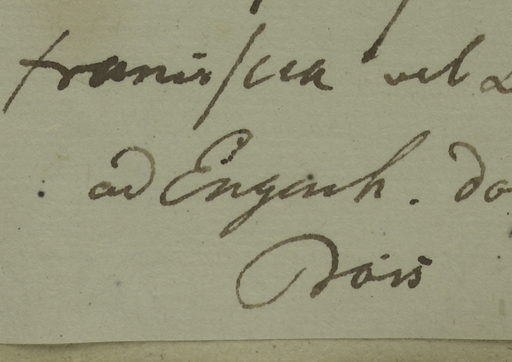 francisca vel
ad Engenh. do
Pois